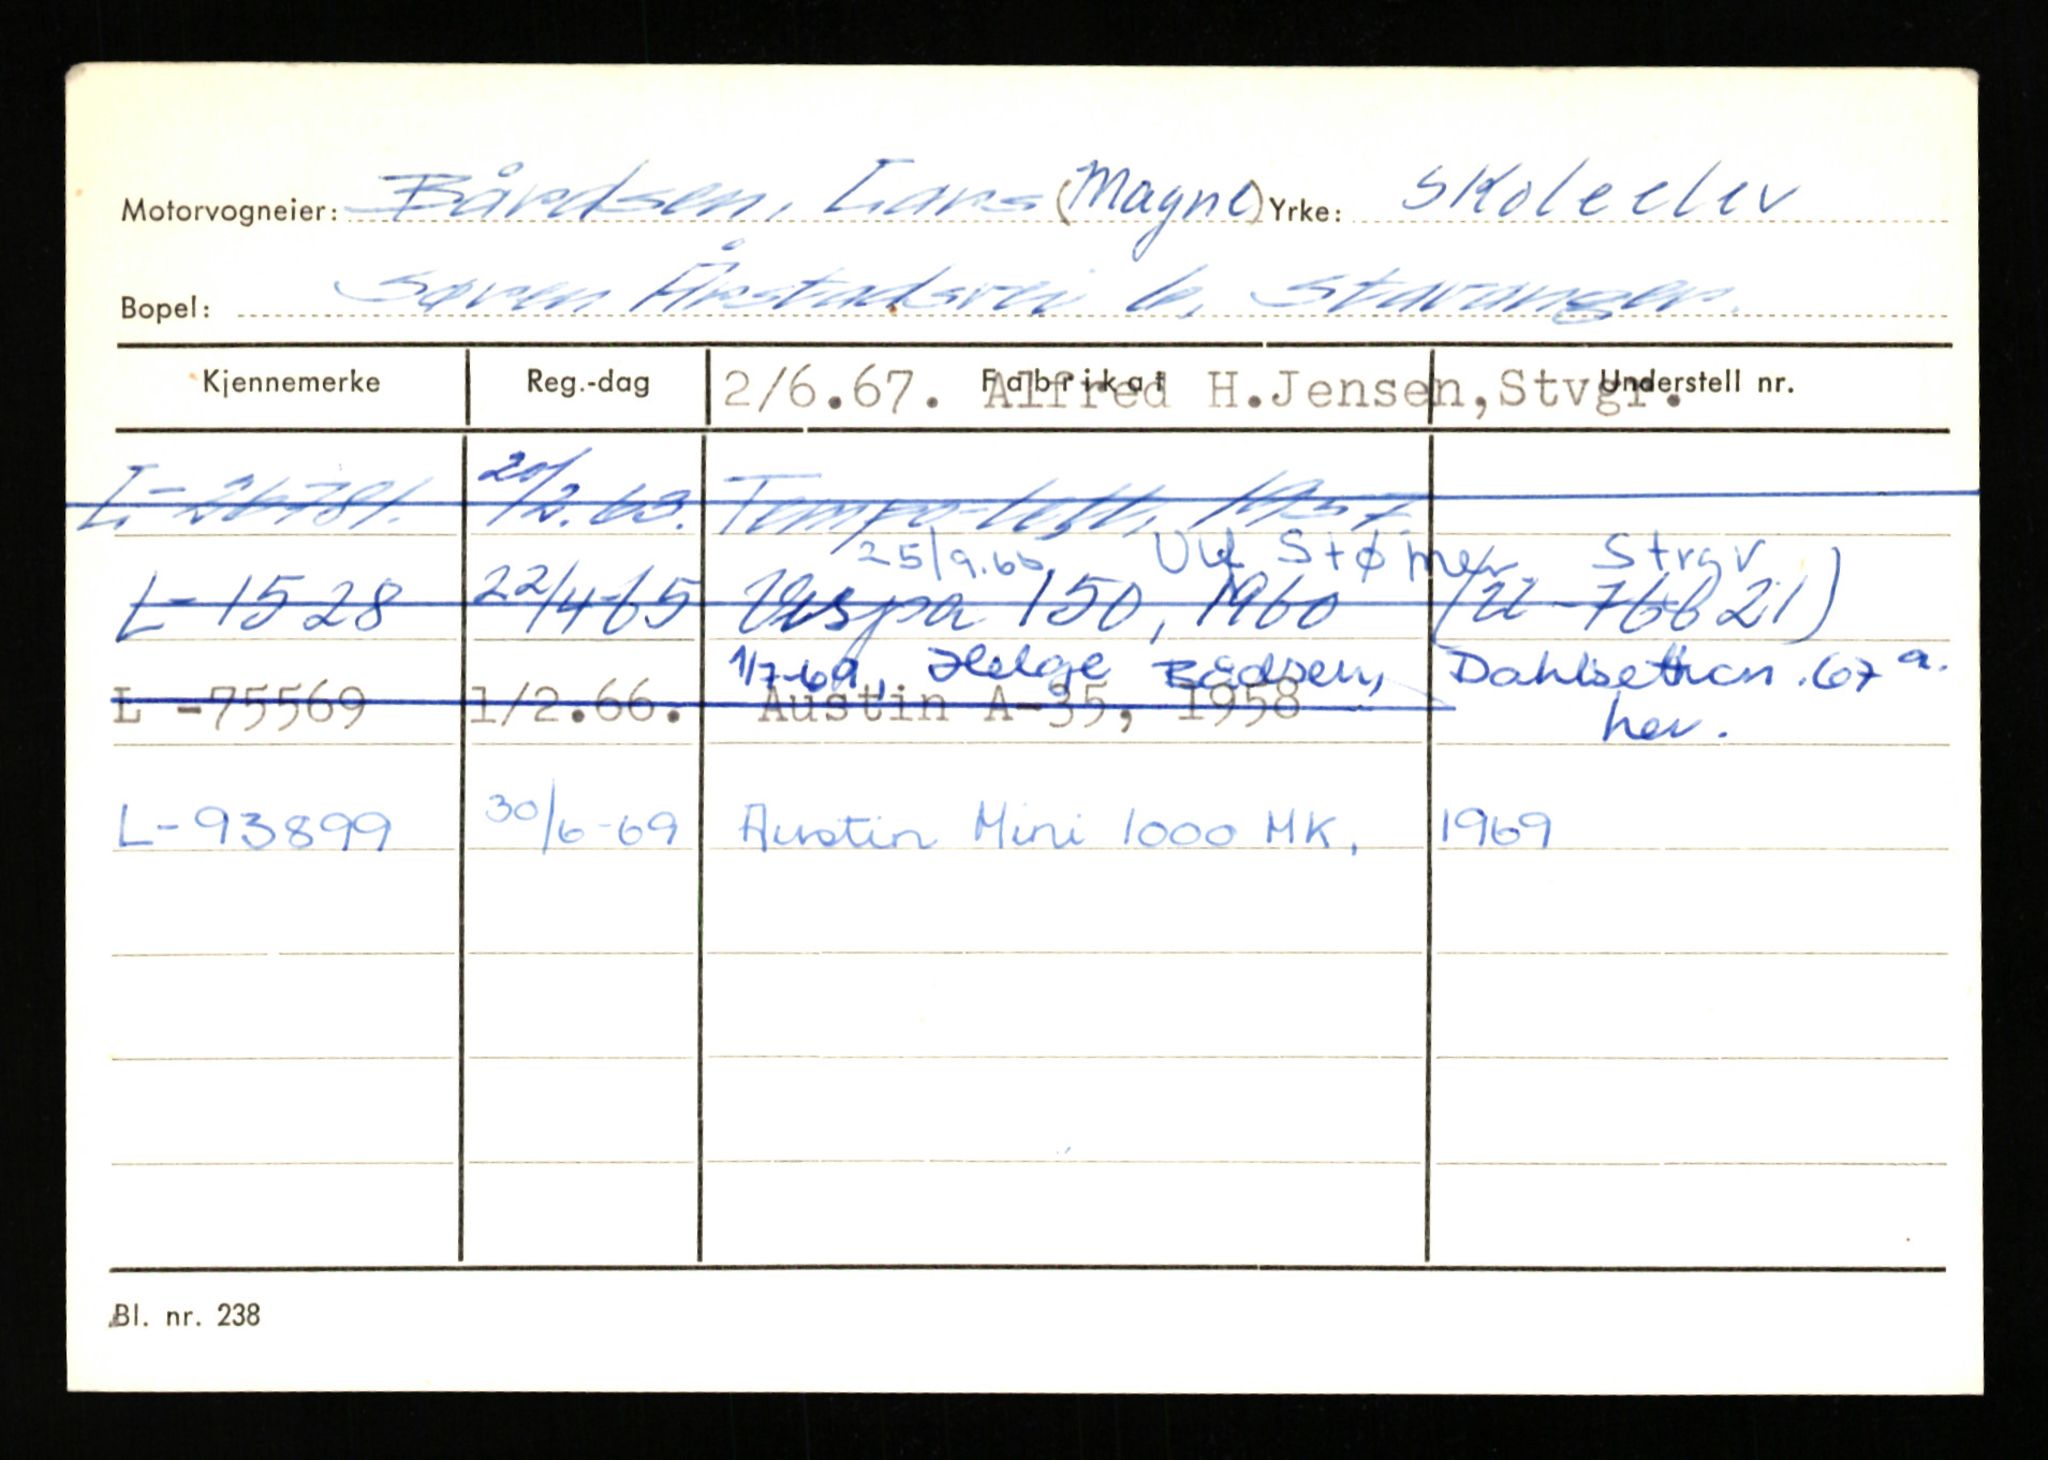 Motorvogneier: Bårdsen, Lars (Magne) Yrke: skoleelev
Bopel: Søren Årstadsvei 6, Stavanger.
Kjennemerke Reg.-dag Fabrikat Understell nr.
2/6.67. Alfred H.Jensen,Stvgr.
L-26781. 20/2.63. Tempo-lett, 1957.
25/9.65. Ulf Størmer Strgv
L-1528 22/4-65 Vespa 150, 1960 (U-76621)
1/7-69, Helge Bådsen, Dahlsettran. 67 a.
her.
L -75569 1/2.66. Austin A-35, 1958
L-93899 30/6-69 Austin Mini 1000 MK, 1969
Bl. nr. 238